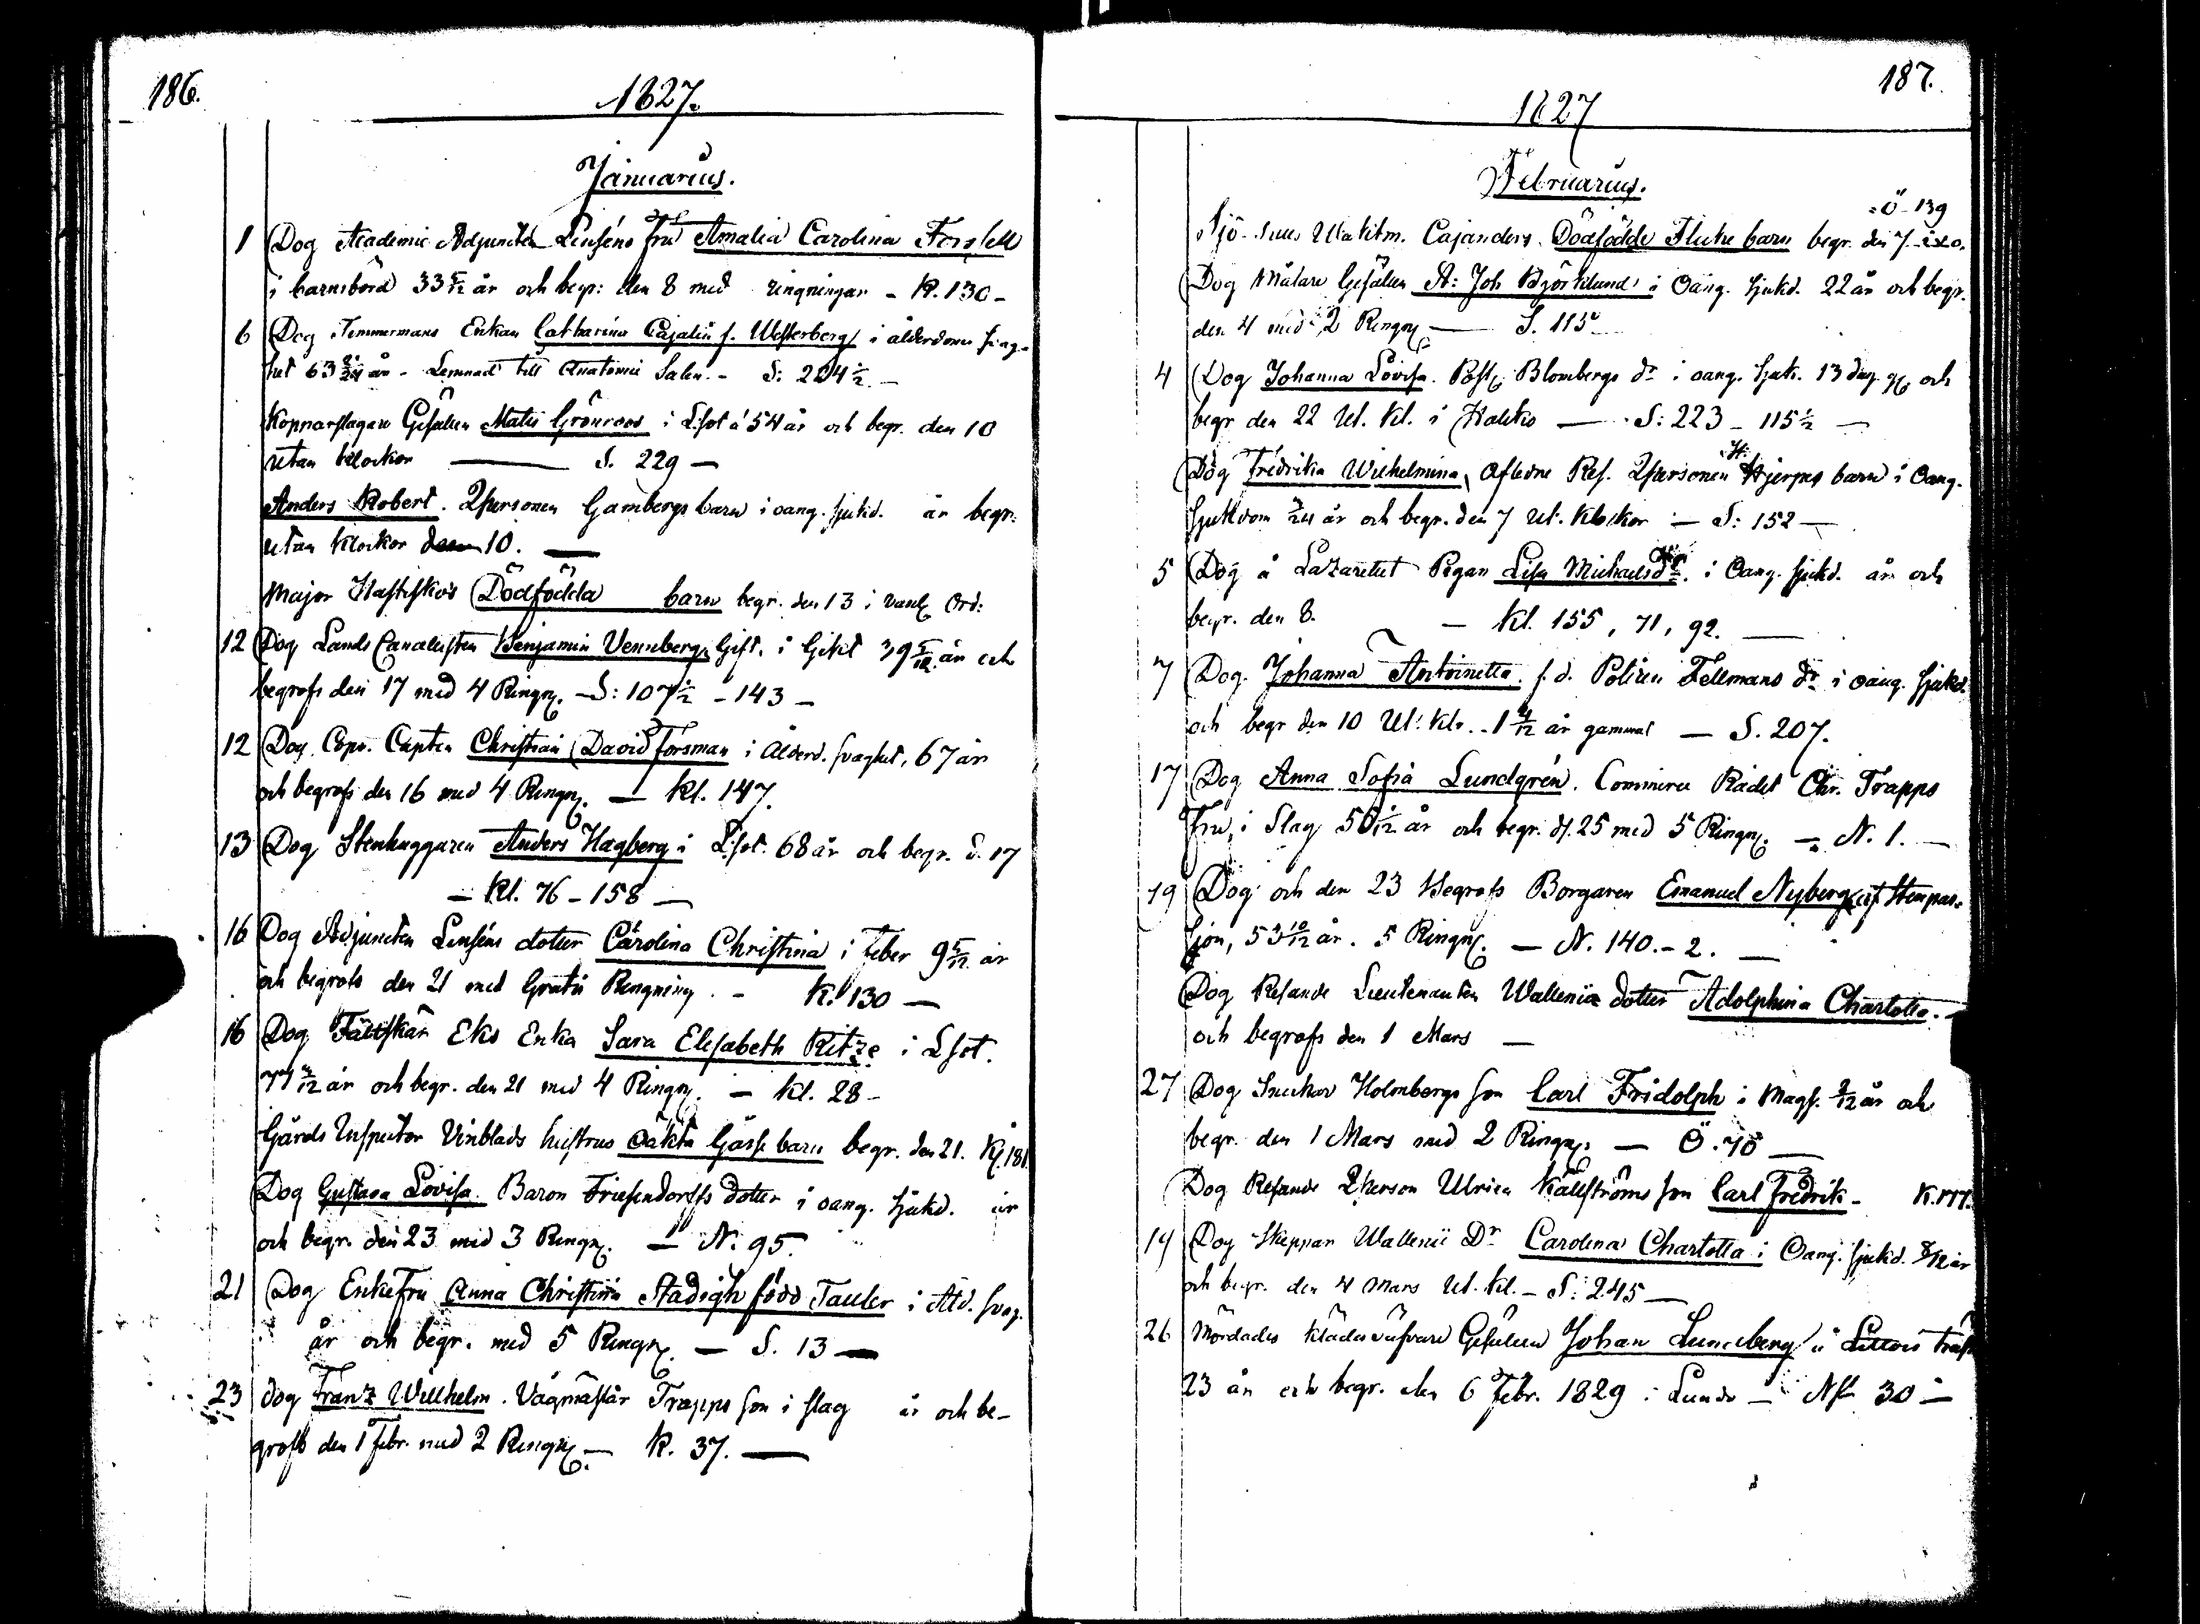 186.
1827.
Januarius.
1 Dog Academie Adjuncten Linséns fru Amalia Carolina Forssell
i barnsbörd 33 5/12 år och begr: den 8 med ringningar - K. 130 -
6 Dog Timmermans Enkan Catharina Cajalin f. Westerberg i ålderdoms svag-
het 63 år - Lemnad till Anatomie Salen. - S: 204 1/2 -
Kopparslagare Gesällen Matts Grönroos i Lsot å 54 år och begr. den 10
utan klockor — S. 229 -
Anders Robert. Qpersonen Gambergs barn i oang. sjukd. år begr.
utan klockor 10. —
Major Hastfko's Dödfödda barn begr. den 13 i Ord:
12 Dog Lands Cancellisten Benjamin Venneberg, Gift, i Gikt 39 år och
begrofs den 17 med 4 Ringn. - S: 107 1/2 - 143 -
12 Dog Capten Christian David Forsman i Ålderd. svaghet, 67 år
och begrofs den 16 med 4 Ringn. — Kl. 147.
13 Dog Stenhuggaren Anders Hagberg i Lsot. 68 år och begr. d. 17
— Kl. 76 - 158 —
16 Dog Adjuncten Linséns dotter Carolina Christina i feber 9 år
och begrofs den 21 med Gratis Ringning. - K. 130 —
16 Dog Fältskär Eks Enka Sara Elisabeth Ritze i Lsot.
år och begr. den 21 med 4 Ringn. — Kl. 28 -
Gårds Inspector Vinblads hustrus oäkta Gosse barn begr. den 21. K. 181.
Dog Gustava Lovisa. Baron Friesendorffs dotter i oang. sjukd. år
och begr. den 23 med 3 Ringn. — N. 95.
21 Dog EnkeFru Anna Christina Stadigh född Tauler i Åld. svag.
år och begr. med 5 Ringn. — S. 13 —
23 dog Franz Willhelm. Vågmästar Trapps son i slag år och be-
grofs den 1 Febr. med 2 Ringn. — K. 37. —
187.
1827
Februarius.
Ö - 139
Cajanders Dödfödde Flicke barn begr. den 7.
Dog Målare Gesällen A: Joh Björklund i Oang. sjukd. 22 år och begr.
den 4 med 2 Ringn. — S. 115
4 Dog Johanna Lovisa. Blombergs dr i oang. sjuk. 13 dag. och
begr den 22 Ut. Kl. i Haliko — S: 223 - 115 1/2 —
Dog Fredrika Wilhelmina, Afledne Res. Qpersonen Hjerpes barn i Oang.
sjukdom år och begr. den 7 Ut. klockor — S: 152 —
5 Dog å Lazarettet Pigan Lisa Michaelsdr. i Oang. sjukd. år och
begr. den 8. — Kl. 155, 71, 92. —
7 Dog. Johanna Antoinetta. f. d. Polisen Fellmans dr i oang. sjukd.
och begr den 10 Ut. Klr. 1 år gammal — S. 207.
17 Dog Anna Sofia Lundgrén. Commerce Rådet Chr. Trapps
Fru, i Slag år och begr. d. 25 med 5 Ringn. — N. 1. —
19 Dog och den 23 Begrofs Borgaren Emanuel Nyberg af
53 10/12 år. 5 Ringn. — N. 140. - 2. —
Dog Resande Lieutenanten Wallenii dotter Adolphina Charlotta. —
och begrofs den 1 Mars —
27 Dog Snickar Holmbergs son Carl Fridolph i Mags. år och
begr. den 1 Mars med 2 Ringn. — Ö. 70 —
Dog Resande Qperson Ulrica Källströms son Carl Fredrik -
14 Dog Skeppar Wallenii Dr Carolina Charlotta i Oang. sjukd. år
och begr. den 4 Mars Ut. Kl. - S: 245 —
26 Mördades Klädesväfvare Gesällen Johan Lundberg å Littois träsk
23 år och begr. den 6 Febr. 1829 i Lundo — 30 —